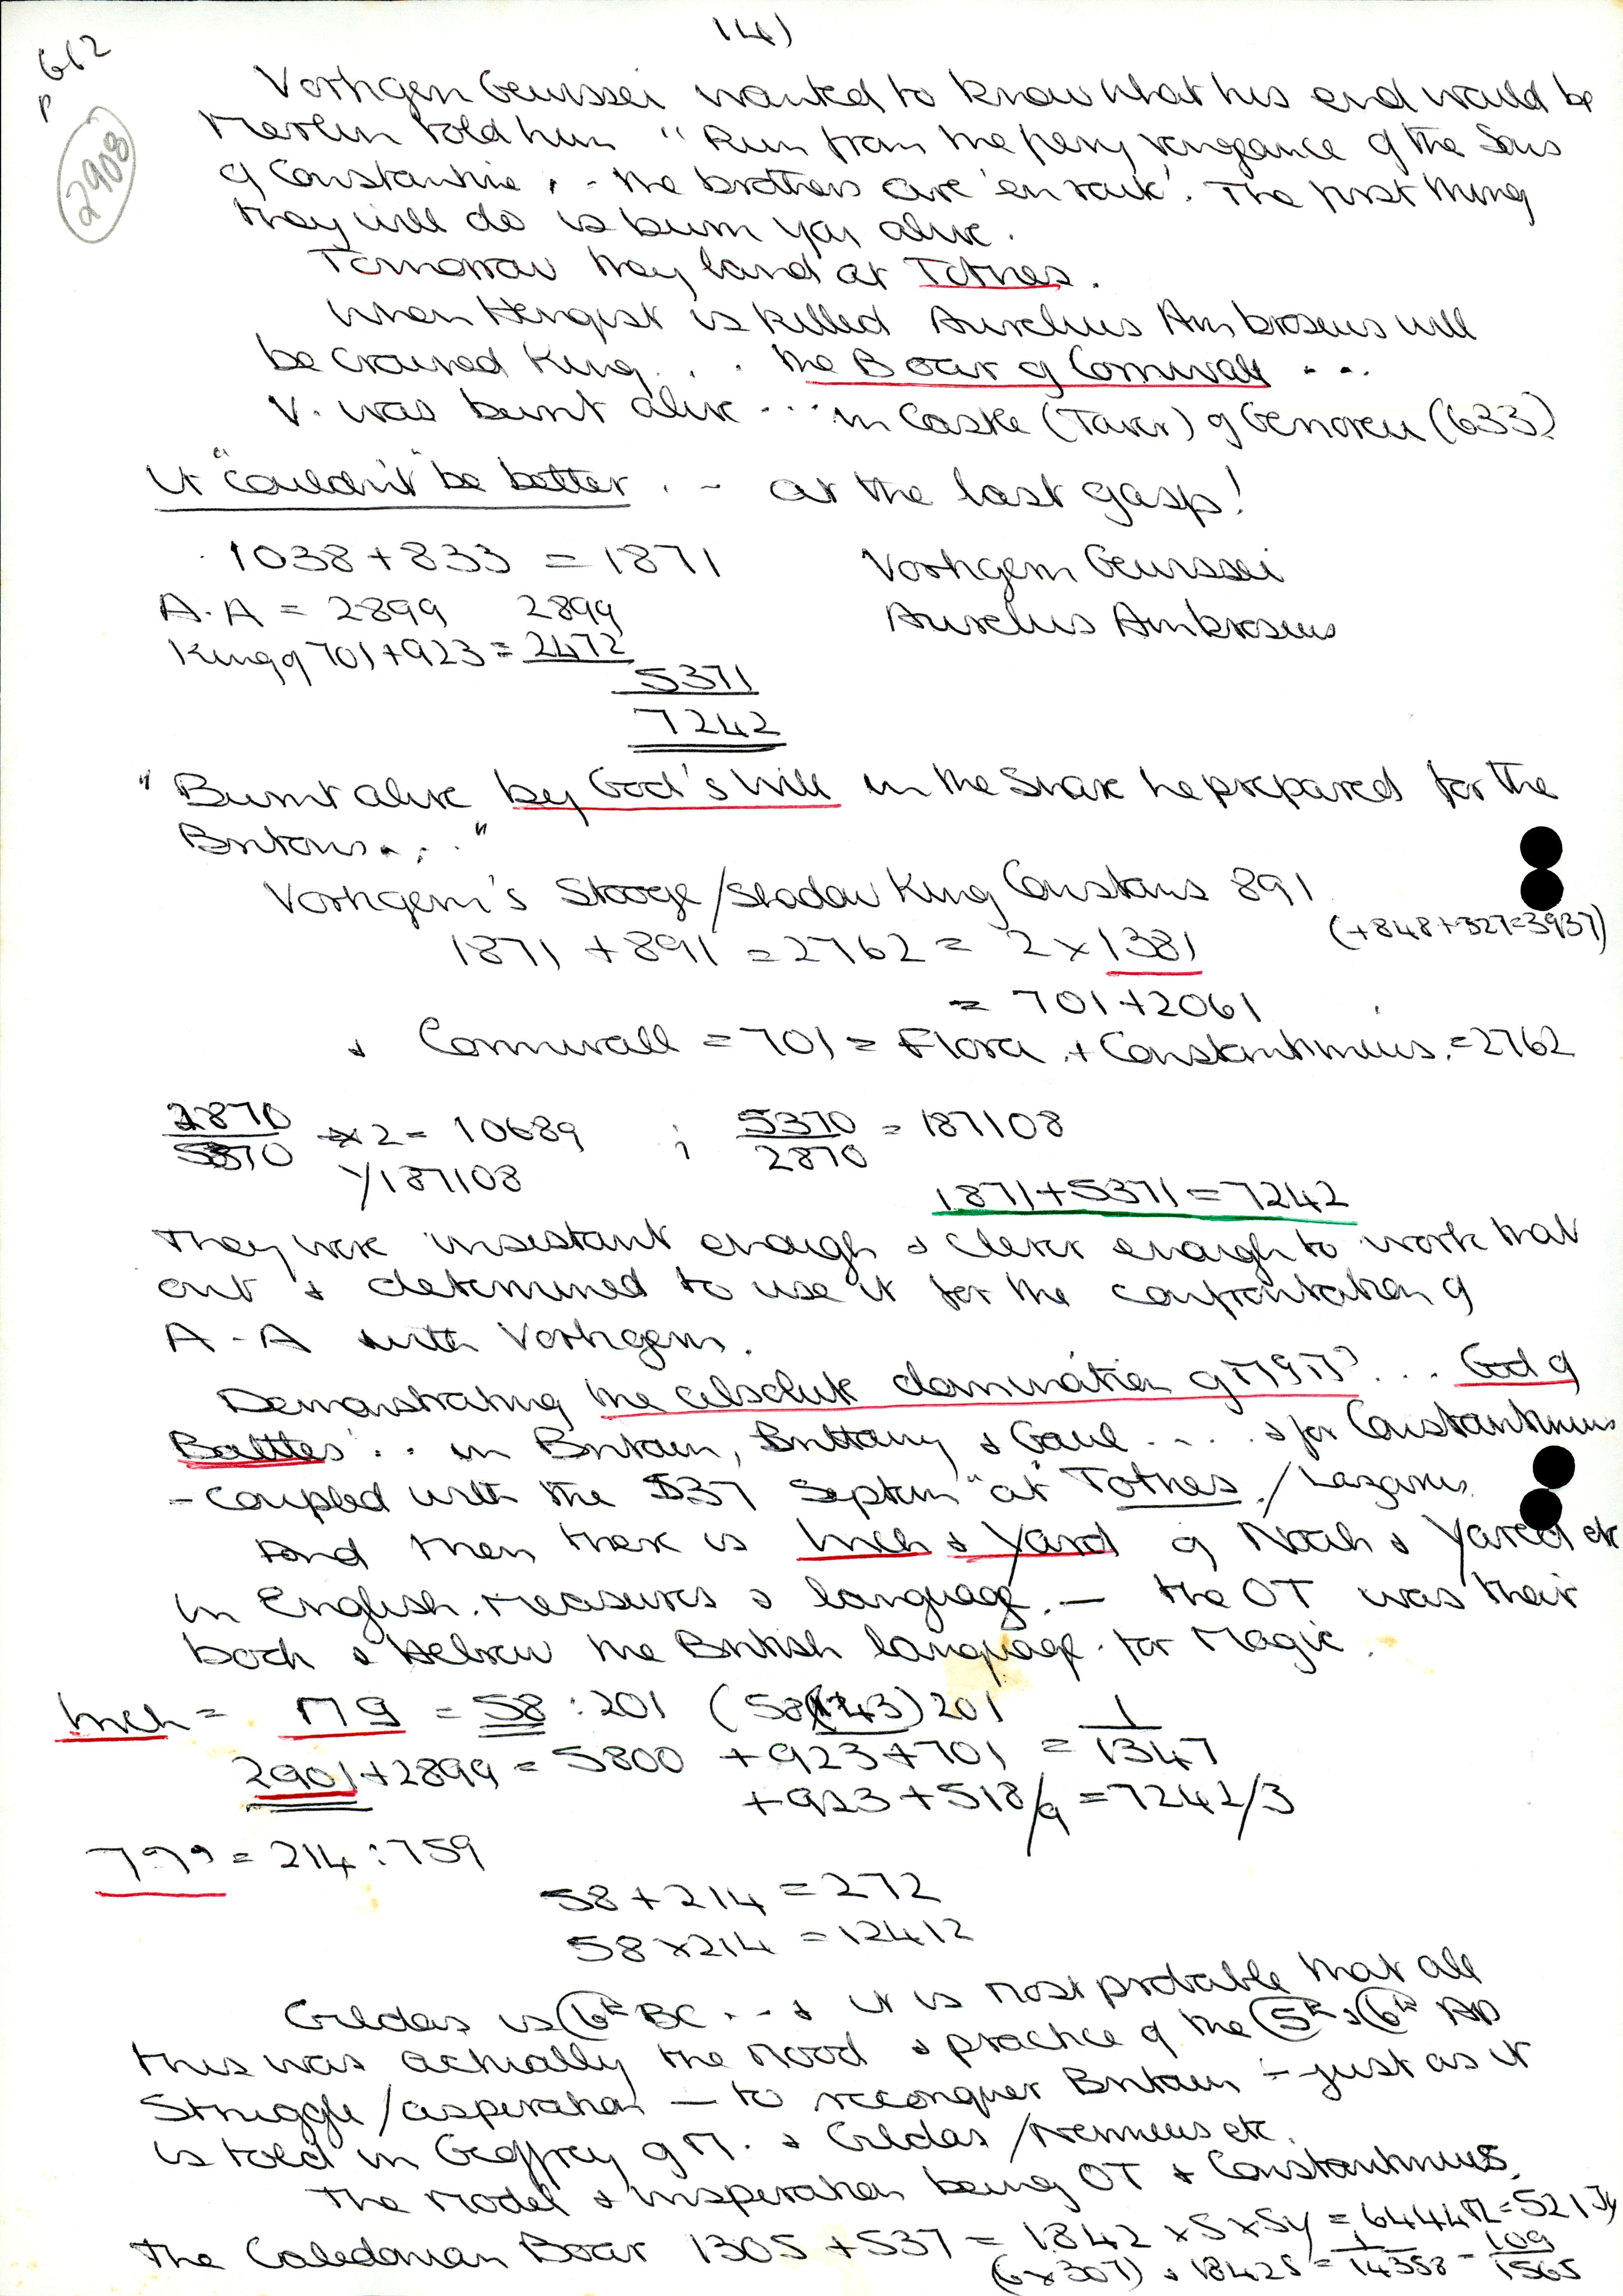 14)
G12
P
2908
Vortigern Gewissei wanted to know what his end would be
Merlin told him "Run from the fiery vengeance of the Sons
of Constantine . - the brothers are 'en route'. The first thing
they will do is burn you alive.
Tomorrow they land at Totnes.
When Hengist is killed Aurelius Ambrosius will
be crowned King . . . the Boar of Cornwall ...
V. was burnt alive ... in Castle (Tower) of Genoreu (633)
It "couldn't" be better . - at the last gasp!
1038 + 833 = 1871 Vortigern Gewissei
A.A = 2899 2899 Aurelius Ambrosius
King of 701+923 = 2472
5371
7242
"Burnt alive by God's will in the snare he prepared for the
Britons . . ."
Vortigern's Stooge/Shadow King Constans 891
(+848+327=3937)
1871 + 891 = 2762 = 2 x 1381
= 701 + 2061
& Cornwall = 701 = Flora + Constantinus. = 2762
2870/5370 x 2 = 10689 ; 5370/2870 = 187108
y187108
1871 + 5371 = 7242
They were insistant enough & clever enough to work that
out & determined to use it for the confrontation of
A-A with Vortigern.
Demonstrating the absolute domination of ... God of
Battles . . in Britain, Brittany & Gaul . . . . & for Constantinus
- coupled with the 537 Septum "at" Totnes / Lazarus.
And then there is Inch & Yard of Noah & Yared etc
in English. Measures & language. — the OT was their
book & Hebrew the British language for Magic.
Inch = = 58 : 201 (58(143)201 1
2901 + 2899 = 5800 + 923 + 701 = 1347
+ 923 + 518/9 = 7242/3
= 214 : 759
58 + 214 = 272
58 x 214 = 12412
Gildas is 6th BC . - & it is most probable that all
this was actually the mood & practice of the 5th & 6th AD
Struggle / aspiration — to reconquer Britain - just as it
is told in Geoffrey of M. & Gildas / Nennius etc.
The Model & inspiration being OT & Constantinus.
The Caledonian Boar 1305 + 537 = 1842 x 5 x 5y = 6444 = 521 Jy
(6 x 307) & 18425 = 1/14358 - 109/1565